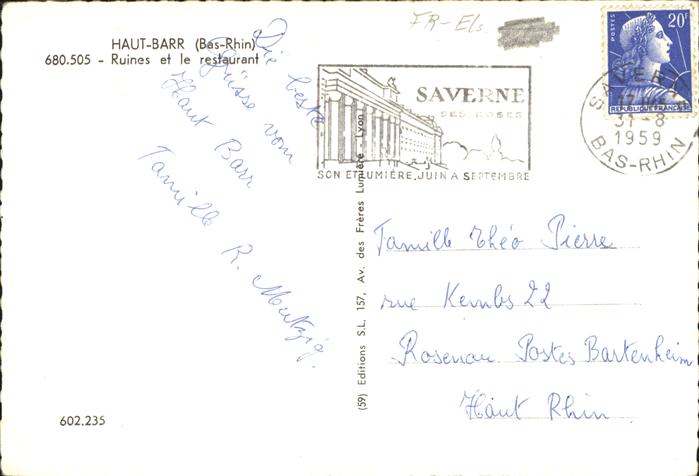 HAUT-BARR (Bas-Rhin)
680.505 - Ruines et le restaurant
Die beste
Grüsse vom
Haut Barr
Familie R. Mutzig.
602.235
(59) Editions S.L. 157, Av. des Frères Lumière - Lyon
FR-Els
SAVERNE
SES ROSES
SON ET LUMIÈRE, JUIN A SEPTEMBRE
POSTES
20F
REPUBLIQUE FRANÇAISE
SAVERNE
31-8
1959
BAS-RHIN
Famille Théo Pierre
rue Kembs 22
Rosenau Postes Bartenheim
Haut Rhin